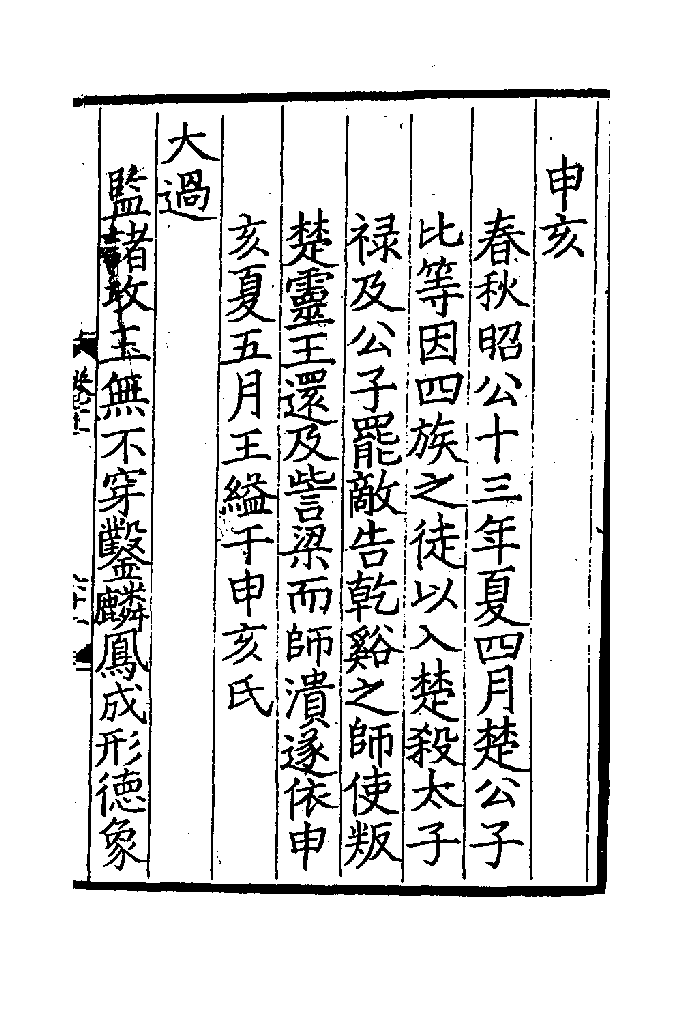 申亥
春秋昭公十三年夏四月楚公子
比等因四族之徒以入楚殺太子
禄及公子罷敵告乾谿之師使叛
楚靈王還及訾梁而師潰遂依申
亥夏五月王縊于申亥氏
大過
監諸攻玉無不穿鑿麟鳳成形德象